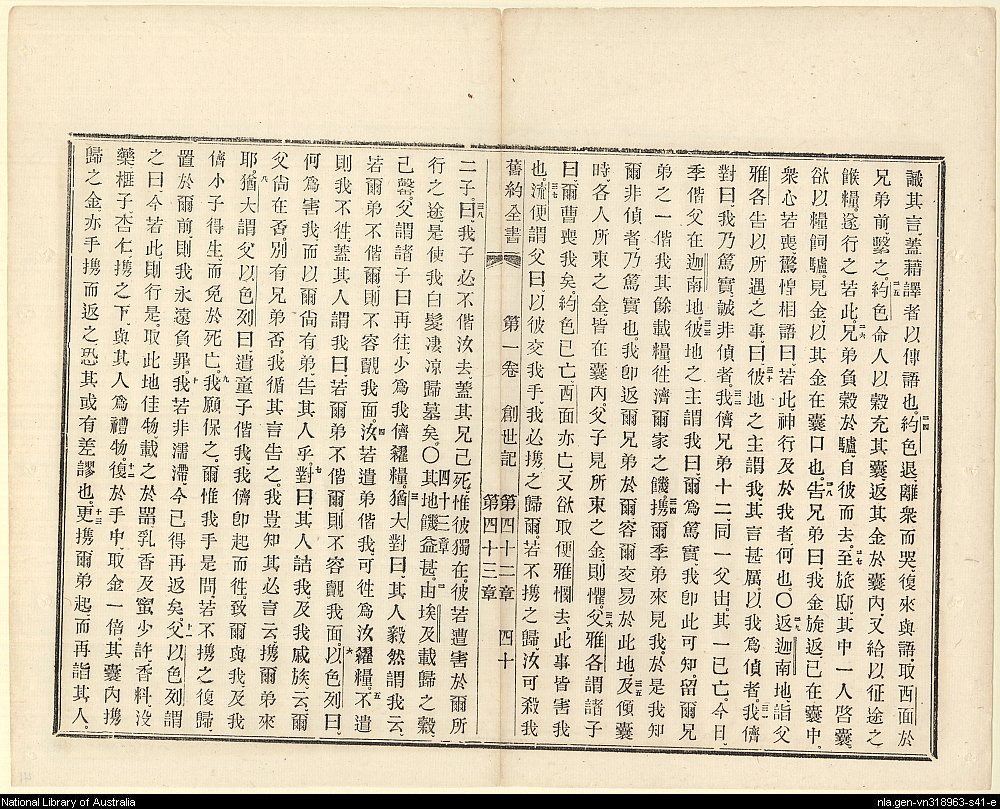 識其言、蓋藉譯者以傳語也。二四約色退離衆而哭、復來與語、取西面於
兄弟前繫之。二五約色命人以穀充其囊、返其金於囊內、又給以征途之
餱糧、遂行之若此。二六兄弟負穀於驢、自彼而去。二七至旅邸、其中一人啓囊、
欲以糧飼驢、見金、以其金在囊口也。二八告兄弟曰、我金旋返、已在囊中。
衆心若喪、驚惶相語曰、若此、神行及於我者何也。〇二九返迦南地、詣父
雅各、告以所遇之事、曰、三十彼地之主謂我、其言甚厲、以我爲偵者。三一我儕
對曰、我乃篤實、誠非偵者。三二我儕兄弟十二、同一父出、其一已亡、今日
季偕父在迦南地。三三彼地之主謂我曰、爾爲篤實、我卽此可知、留爾兄
弟之一偕我、其餘載糧往濟爾家之饑、三四攜爾季弟來見我、於是我知
爾非偵者、乃篤實也。我卽返爾兄弟於爾、容爾交易於此地。三五及傾囊
時、各人所束之金、皆在囊內、父子見所束之金則懼。三六父雅各謂諸子
曰、爾曹喪我矣。約色已亡、西面亦亡、又欲取便雅憫去、此事皆害我
也。三七流便謂父曰、以彼交我手、我必攜之歸爾、若不攜之歸、汝可殺我
舊約全書　第一卷　創世記　第四十二章　第四十三章　四十
二子。三八曰、我子必不偕汝去、蓋其兄已死、惟彼獨在、彼若遭害於爾所
行之途、是使我白髮凄凉歸墓矣。〇四十三章其地饑益甚。二由埃及載歸之穀
已罄、父謂諸子曰、再往、少爲我儕糴糧。三猶大對曰、其人毅然謂我云、
若爾弟不偕爾、則不容觀我面。四汝若遣弟偕我、可往爲汝糴糧。五不遣
則我不往、蓋其人謂我曰、若爾弟不偕爾、則不容觀我面。六以色列曰、
何爲害我、而以爾尙有弟、告其人乎。七對曰、其人詰我、及我戚族云、爾
父尙在否、別有兄弟否、我循其言告之、我豈知其必言云、攜爾弟來
耶。八猶大謂父以色列曰、遣童子偕我、我儕卽起而往、致爾與我、及我
儕小子得生、而免於死亡。九我願保之、爾惟我手是問、若不攜之復歸、
置於爾前、則我永遠負罪。十我若非濡滯、今已得再返矣。十一父以色列謂
之曰、今若此、則行是、取此地佳物載之於器、乳香及蜜少許、香料、沒
藥、榧子、杏仁、攜之下、與其人爲禮物。十二復於手中、取金一倍、其囊內攜
歸之金、亦手攜而返之、恐其或有差謬也。十三更攜爾弟起、而再詣其人。
National Library of Australia
nla.gen-vn318963-s41-e